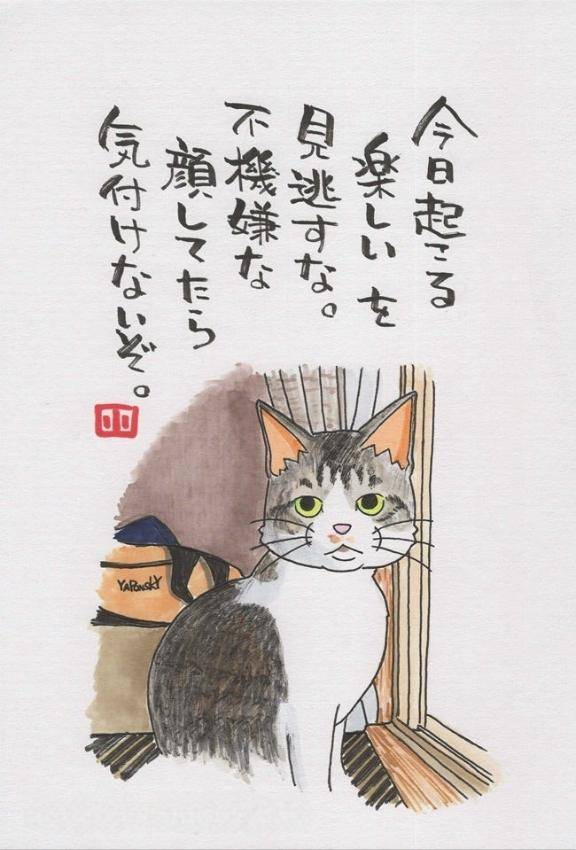 今日起こる
楽しいを
見逃すな。
不機嫌な
顔してたら
気付けないぞ。
YAPONSKY